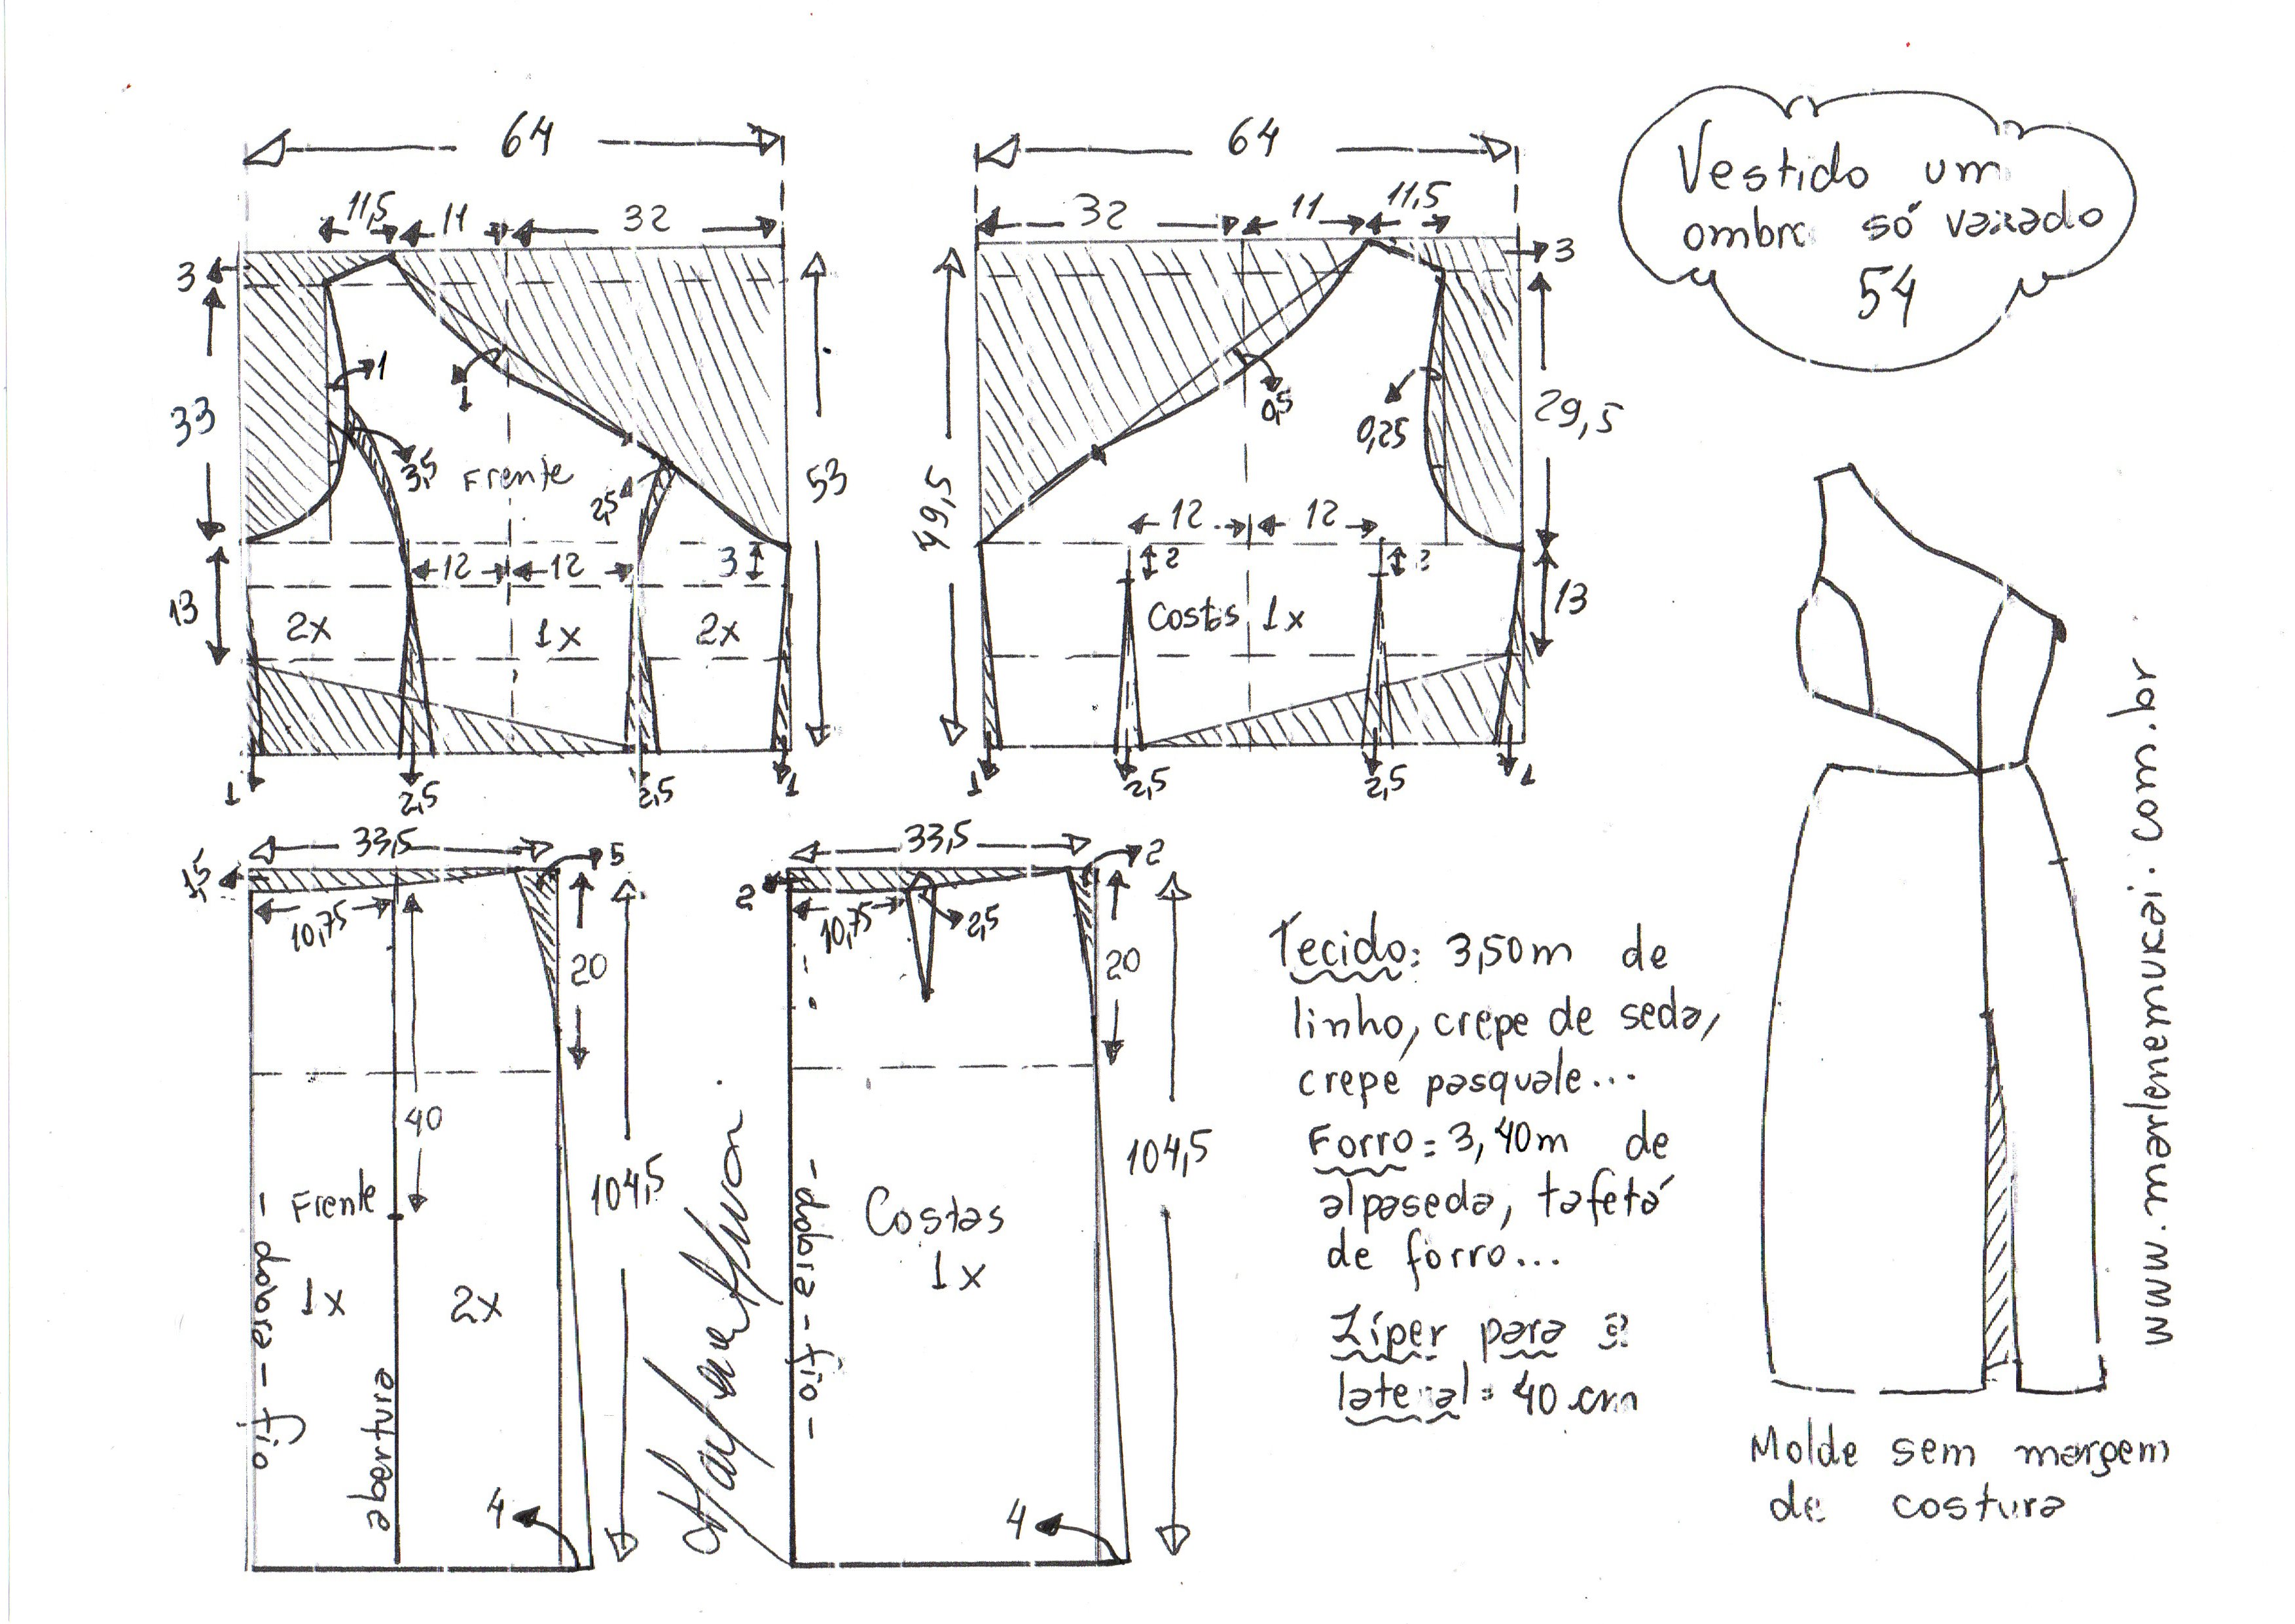 64
11,5
11
32
3
33
13
1
1
3,5
Frente
2,5
53
12
12
3
2x
1x
2x
1
2,5
2,5
1
64
32
11
11,5
3
49,5
0,5
0,25
29,5
12
12
2
2
Costas 1x
13
1
2,5
2,5
1
Vestido um
ombro só vazado
54
33,5
1,5
5
10,75
20
40
104,5
Frente
1x
2x
- dobra - fio
abertura
4
33,5
2
2
10,75
2,5
20
104,5
Costas
1x
- dobra - fio -
4
Tecido: 3,50m de
linho, crepe de seda,
crepe pasquale...
Forro = 3,40m de
alpaseda, tafetá
de forro...
Zíper para a
lateral = 40 cm
www.marlenemukai.com.br
Molde sem margem
de costura